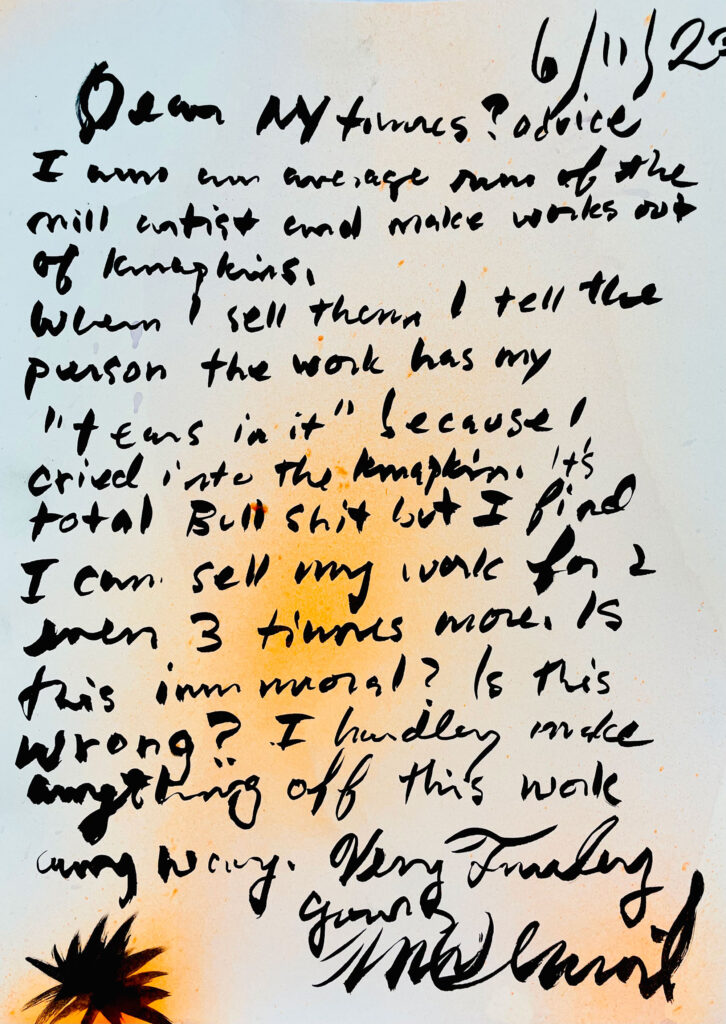 6/11/23
Dear NY times? advice
I am an average run of the
mill artist and make works out
of knapkins.
When I sell them, I tell the
person the work has my
"tears in it" because I
cried into the knapkin. It's
total Bull shit but I find
I can sell my work for 2
even 3 times more. Is
this immmoral? Is this
wrong? I hardley make
anything off this work
any way. Very Truley
yours